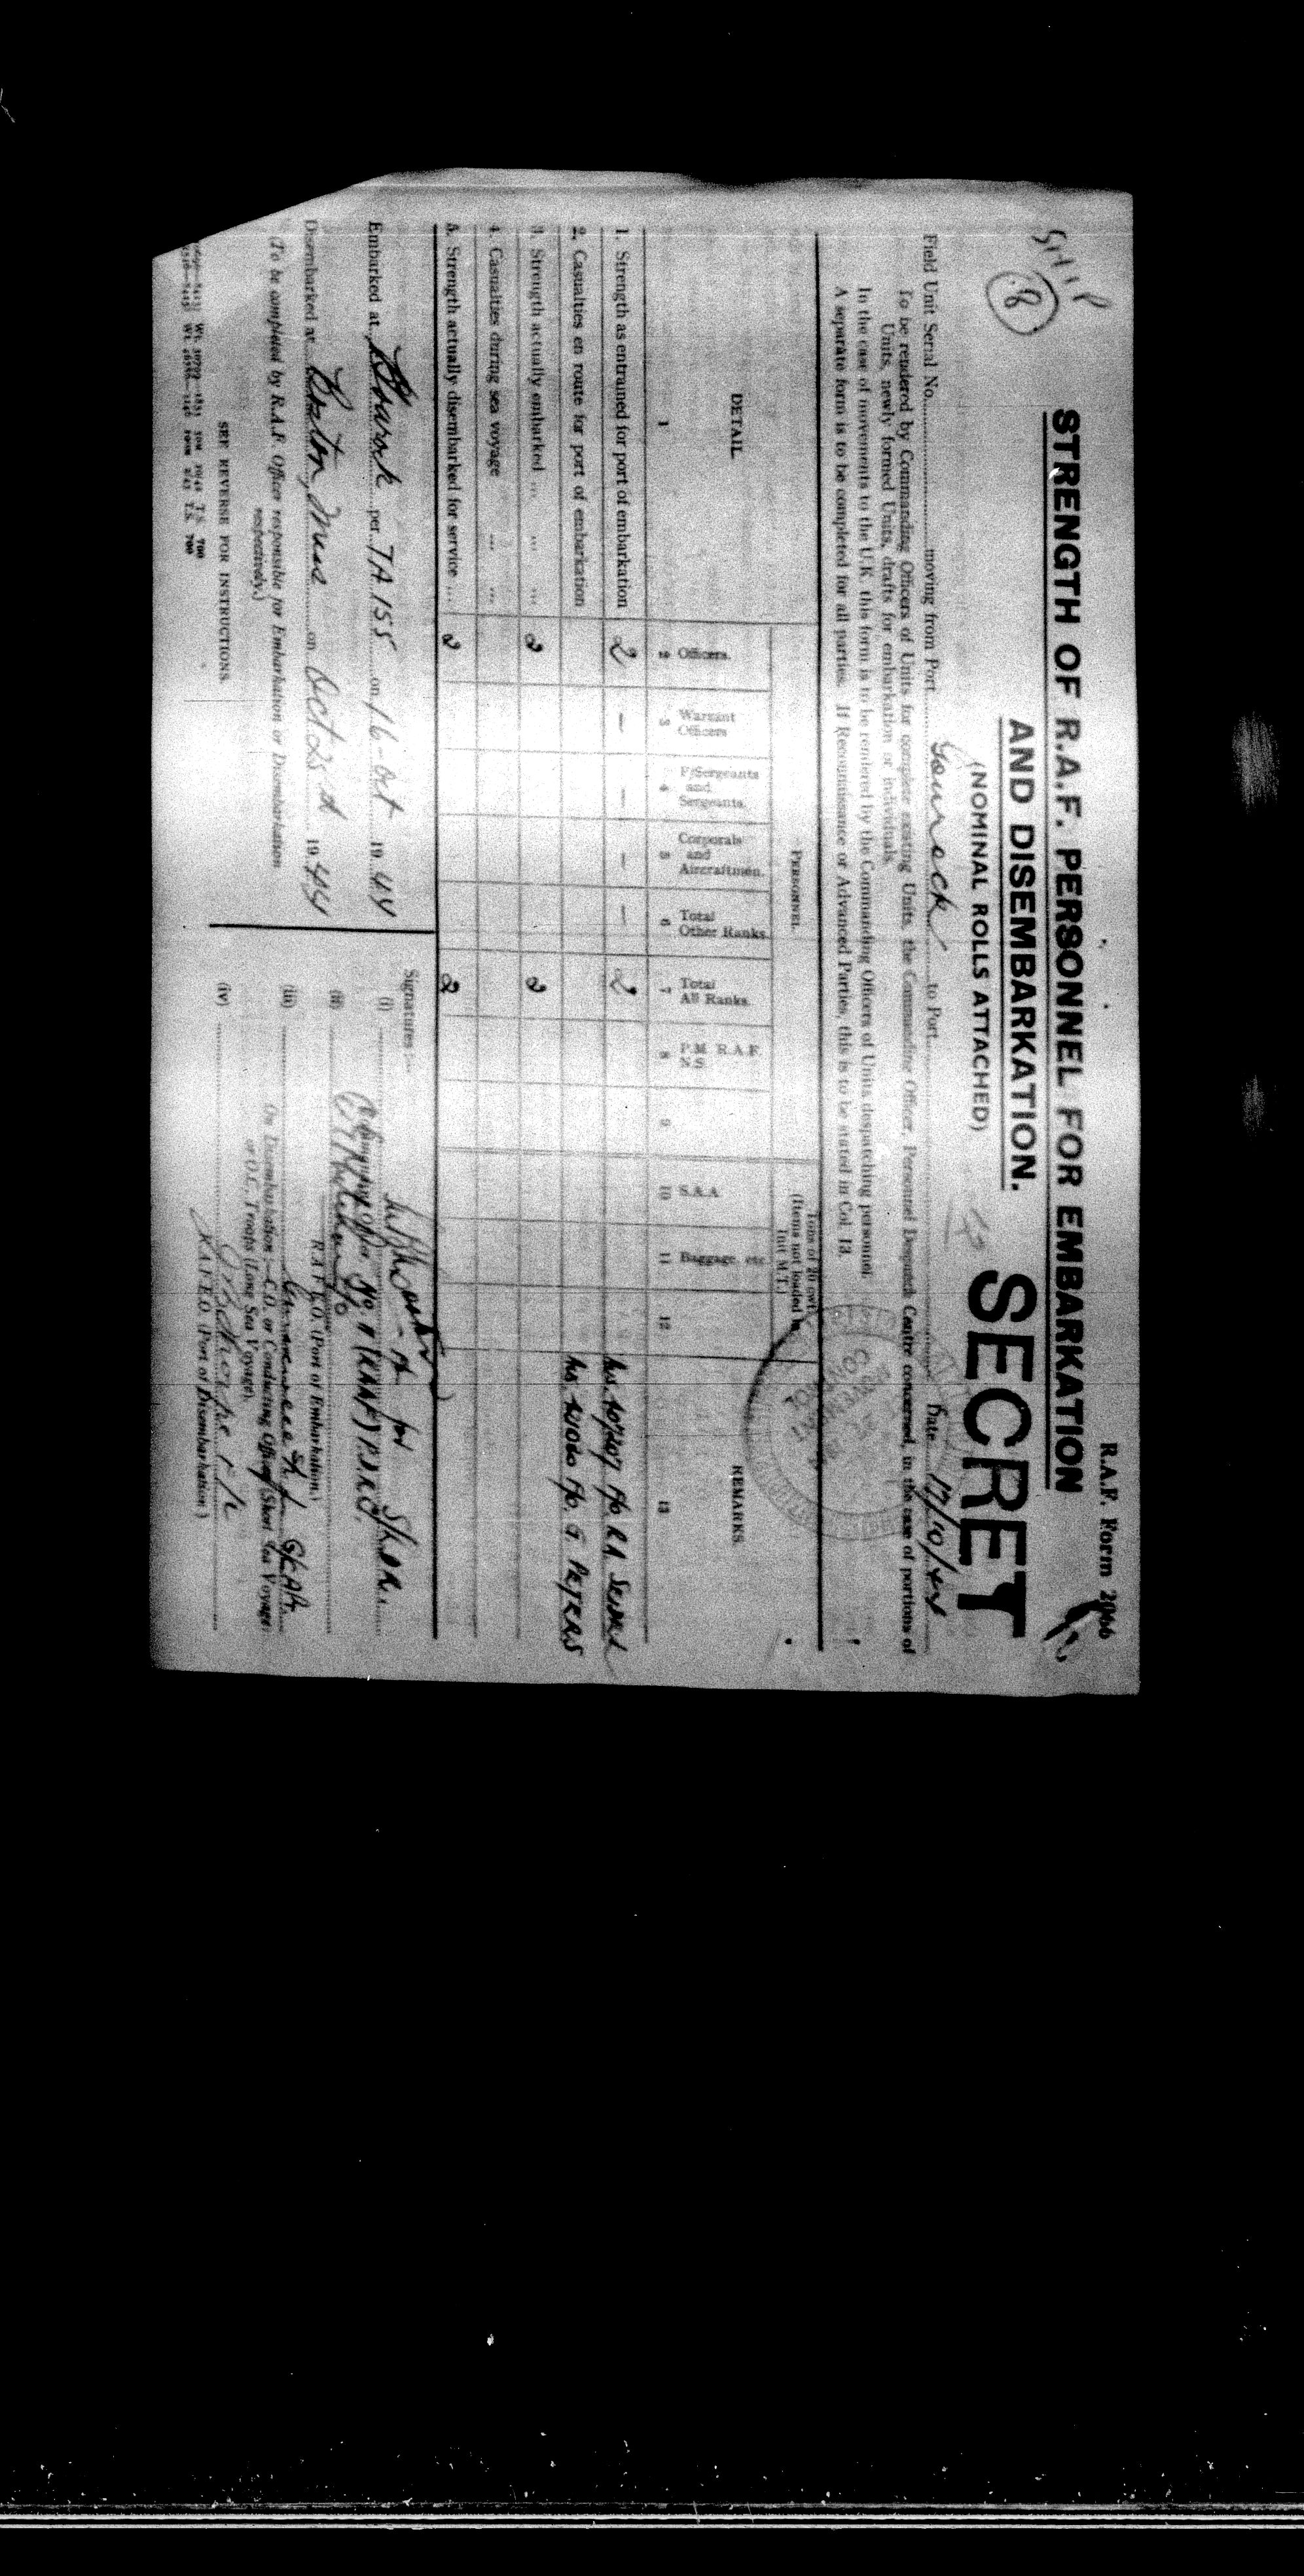 R.A.F. Form 2066
SHIP
8
STRENGTH OF R.A.F. PERSONNEL FOR EMBARKATION
AND DISEMBARKATION.
SECRET
(NOMINAL ROLLS ATTACHED)
Field Unit Serial No. moving from Port Gourock to Port Date 17/10/44
To be rendered by Commanding Officers of Units for complete existing Units, the Commanding Officer, Personnel Despatch Centre concerned, in the case of portions of
Units, newly formed Units, drafts for embarkation or individuals.
In the case of movements to the U.K. this form is to be rendered by the Commanding Officers of Units dispatching personnel.
A separate form is to be completed for all parties. If Reconnaissance or Advanced Parties, this is to be stated in Col. 13.
DETAIL
PERSONNEL.
Tons of 20 cwt.
(Items not loaded in
Unit M.T.)
REMARKS.
Officers.
Warrant
Officers
F/Sergeants
and
Sergeants.
Corporals
and
Aircraftmen.
Total
Other Ranks.
Total
All Ranks.
P.M. R.A.F.
N.S.
S.A.A.
Baggage, etc.
1 2 3 4 5 6 7 8 9 10 11 12 13
1. Strength as entrained for port of embarkation 2 — — — — 2
2. Casualties en route for port of embarkation F/O. G. PETERS
3. Strength actually embarked ... ... ... 2 2
4. Casualties during sea voyage ... ...
5. Strength actually disembarked for service ... 2 2
Embarked at Gourock per TA 155 on 16-Oct 1944
Disembarked at Boston, Mass on Oct 25th 1944
(To be completed by R.A.F. Officer responsible for Embarkation or Disembarkation
respectively.)
SEE REVERSE FOR INSTRUCTIONS.
Signatures :—
(i) for
Commanding Officer No. 11 (RAAF) P.D.R.C.
(ii)
R.A.F.E.O. (Port of Embarkation.)
(iii)
On Disembarkation :—C.O. or Conducting Officer (Short Sea Voyage)
or O.C. Troops (Long Sea Voyage).
(iv)
R.A.F.E.O. (Port of Disembarkation.)